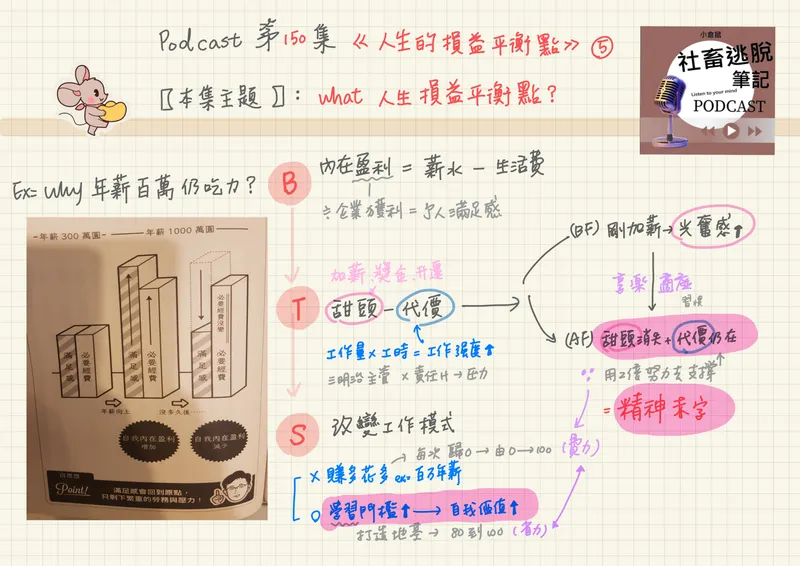 Podcast 第150集 《人生的損益平衡點》⑤
〖本集主題〗: what 人生損益平衡點?
小倉鼠
社畜逃脫
筆記
Listen to your mind
PODCAST
Ex= why 年薪百萬仍吃力?
年薪 300 萬圓
年薪 1000 萬圓
滿足感
必要經費
滿足感
必要經費
滿足感
必要經費
必要經費沒變
年薪向上
沒多久後……
自我內在盈利
增加
自我內在盈利
減少
自問題
Point!
滿足感會回到原點,
只剩下繁重的勞務與壓力!
B
內在盈利 = 薪水 - 生活費
企業獲利 = 個人滿足感
加薪、獎金、升遷
T
甜頭 - 代價
工作量 x 工時 = 工作強度↑
x 責任↑→壓力
(BF) 剛加薪→興奮感↑
享樂適應
習慣
(AF) 甜頭消失+代價仍在
用2倍努力去支撐
= 精神赤字
S
改變工作模式
每次歸0→由0→100 (費力)
X 賺多花多 ex: 百萬年薪
O 學習門檻↑→自我價值↑
打造地基→80到100 (省力)